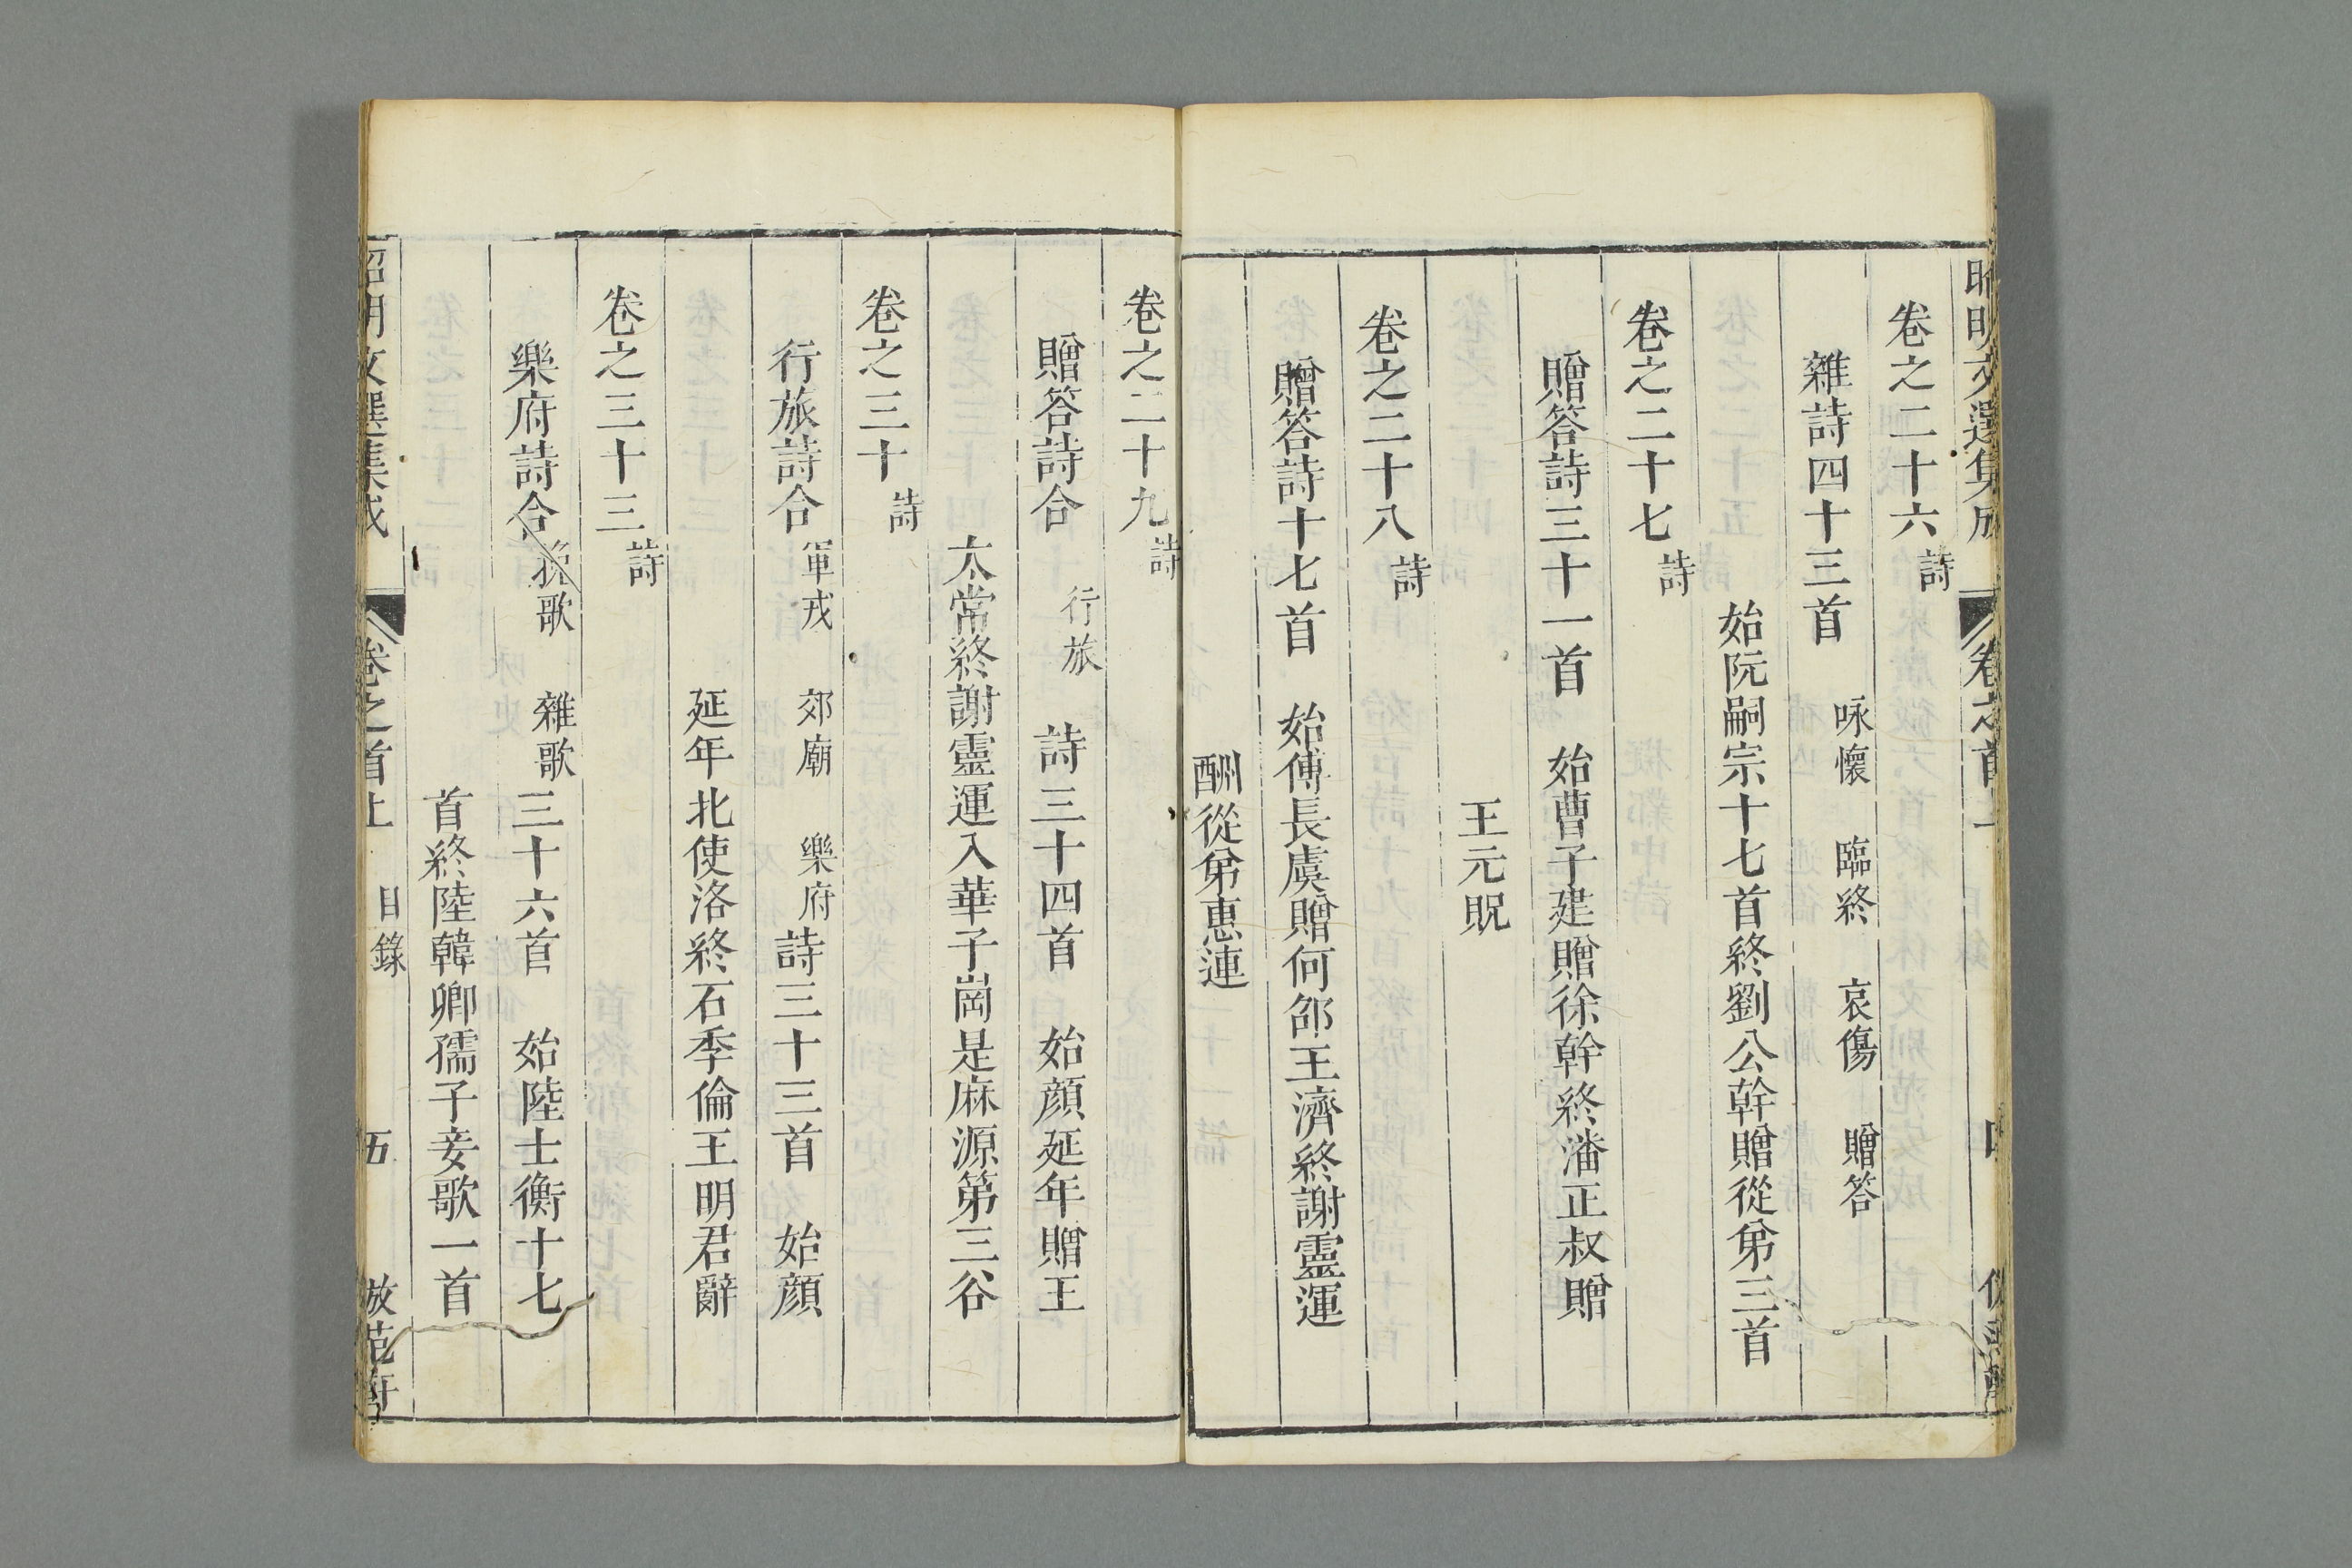 昭明文選集成 卷之首上
卷之二十六 詩
雜詩四十三首 咏懷 臨終 哀傷 贈答
始阮嗣宗十七首終劉公幹贈從弟三首
卷之二十七 詩
贈答詩三十一首 始曹子建贈徐幹終潘正叔贈
王元貺
卷之二十八 詩
贈答詩十七首 始傅長虞贈何邵王濟終謝靈運
酬從弟惠連
卷之二十九 詩
贈答詩合 行旅 詩三十四首 始顏延年贈王
太常終謝靈運入華子崗是麻源第三谷
卷之三十 詩
行旅詩合 軍戎 郊廟 樂府 詩三十三首 始顏
延年北使洛終石季倫王明君辭
卷之三十三 詩
樂府詩合 挽歌 雜歌 三十六首 始陸士衡十七
首終陸韓卿孺子妾歌一首
昭明文選集成 卷之首上 目錄 五 倣范軒